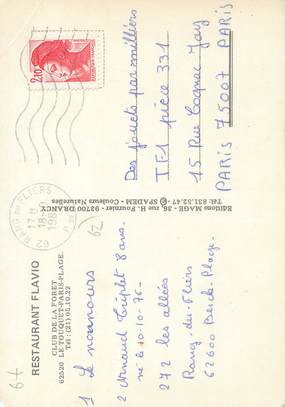 RESTAURANT FLAVIO
CLUB DE LA FORET
62520 LE TOUQUET-PARIS-PLAGE.
Tél : (21) 05.10.22
1 Le nounours
2 Arnaud Triplet 8 ans.
né le 10-10-76-
272 les allées
Rang-du-Fliers
62600 Berck-Plage.
62
67
Editions MAGE - 36, rue H. Fournier - 93700 DRANCY
Tél. 831.52.47 - SPADEM - Couleurs Naturelles
62 RANG DU FLIERS
17 H
18-
198
2,10
Des jouets par milliers
TF1 pièce 331
15 Rue Cognac Jay
PARIS 75007 PARIS